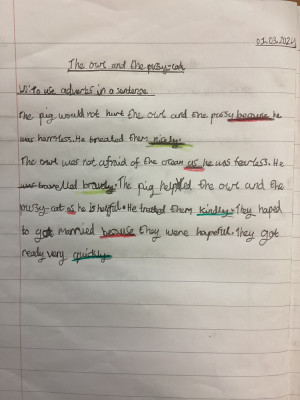 01.03.2024
The owl and the pussy-cat
WI: to use adverbs in a sentence
The pig would not hurt the owl and the pussy because he
was harmless. He treated them nicely.
The owl was not afraid of the ocean as he was fearless. He
was travelled bravely. The pig helped the owl and the
pussy-cat as he is helpful. He treated them kindly. They hoped
to get married because they were hopeful. They got
ready very quickly.